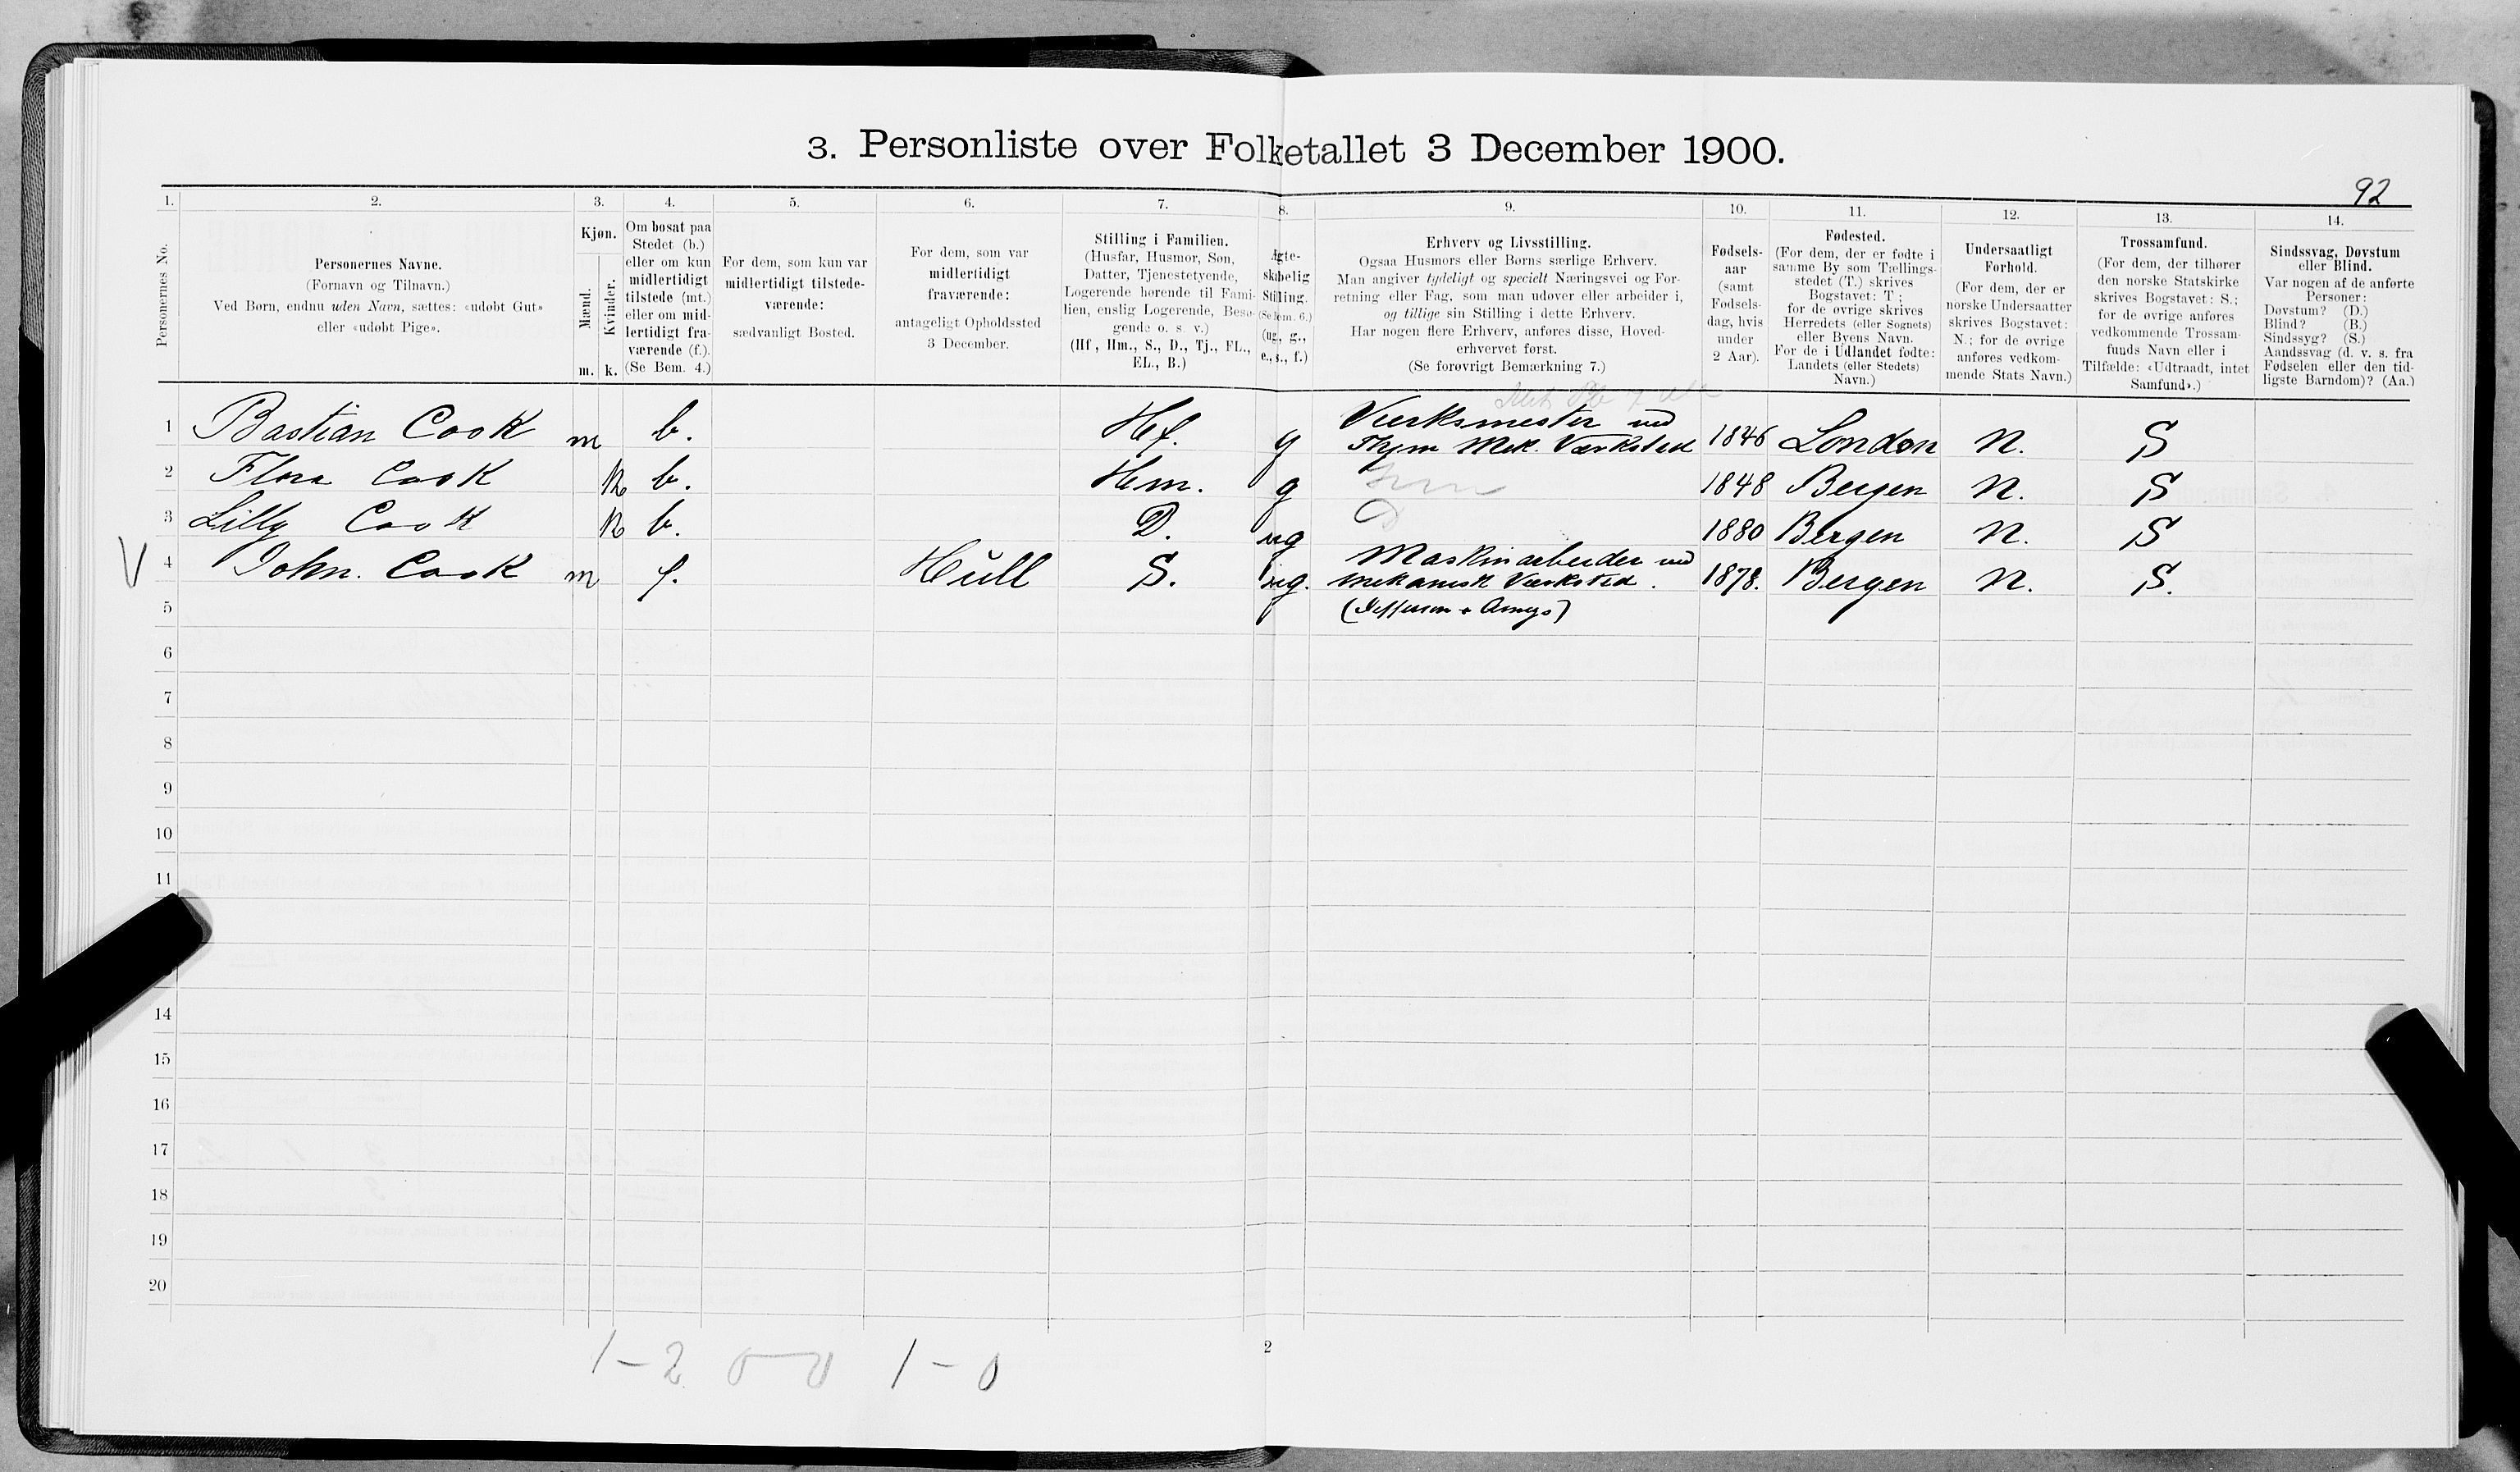 3. Personliste over Folketallet 3 December 1900.
92
1. 2. 3. 4. 5. 6. 7. 8. 9. 10. 11. 12. 13. 14.
Personernes No.
Personernes Navne.
(Fornavn og Tilnavn.)
Ved Børn, endnu uden Navn, sættes: «udøbt Gut»
eller «udøbt Pige».
Kjøn.
Mænd.
Kvinder.
m. k.
Om bosat paa
Stedet (b.)
eller om kun
midlertidigt
tilstede (mt.)
eller om mid-
lertidigt fra-
værende (f.).
(Se Bem. 4.)
For dem, som kun var
midlertidigt tilstede-
værende:
sædvanligt Bosted.
For dem, som var
midlertidigt
fraværende:
antageligt Opholdssted
3 December.
Stilling i Familien.
(Husfar, Husmor, Søn,
Datter, Tjenestetyende,
Logerende hørende til Fami-
lien, enslig Logerende, Besø-
gende o. s. v.)
(Hf., Hm., S., D., Tj., FL.,
EL., B.)
Ægte-
skabelig
Stilling.
(Se Bem. 6.)
(ug., g.,
e., s., f.)
Erhverv og Livsstilling.
Ogsaa Husmors eller Børns særlige Erhverv.
Man angiver tydeligt og specielt Næringsvei og For-
retning eller Fag, som man udøver eller arbeider i,
og tillige sin Stilling i dette Erhverv.
Har nogen flere Erhverv, anføres disse, Hoved-
erhvervet først.
(Se forøvrigt Bemærkning 7.)
Fødsels-
aar
(samt
Fødsels-
dag, hvis
under
2 Aar).
Fødested.
(For dem, der er fødte i
samme By som Tællings-
stedet (T.) skrives
Bogstavet: T;
for de øvrige skrives
Herredets (eller Sognets)
eller Byens Navn.
For de i Udlandet fødte:
Landets (eller Stedets)
Navn.)
Undersaatligt
Forhold.
(For dem, der er
norske Undersaatter
skrives Bogstavet:
N.; for de øvrige
anføres vedkom-
mende Stats Navn.)
Trossamfund.
(For dem, der tilhører
den norske Statskirke
skrives Bogstavet: S.;
for de øvrige anføres
vedkommende Trossam-
funds Navn eller i
Tilfælde: «Udtraadt, intet
Samfund».)
Sindssvag, Døvstum
eller Blind.
Var nogen af de anførte
Personer:
Døvstum? (D.)
Blind? (B.)
Sindssyg? (S.)
Aandssvag (d. v. s. fra
Fødselen eller den tid-
ligste Barndom)? (Aa.)
1 Bastian Cook m b. Hf. g Værksmester ved
Mek. Værksted 1846 London N. S
2 Flora Cook k b. Hm. g 1848 Bergen N. S
3 Lilly Cook k b. D. ug 1880 Bergen N. S
V 4 John. Cook m f. Hull S. ug. Maskinarbeider ved
mekanisk Værksted. 1878. Bergen N. S.
5
6
7
8
9
10
11
14
15
16
17
18
19
20
1-2 0-0 1-0
2